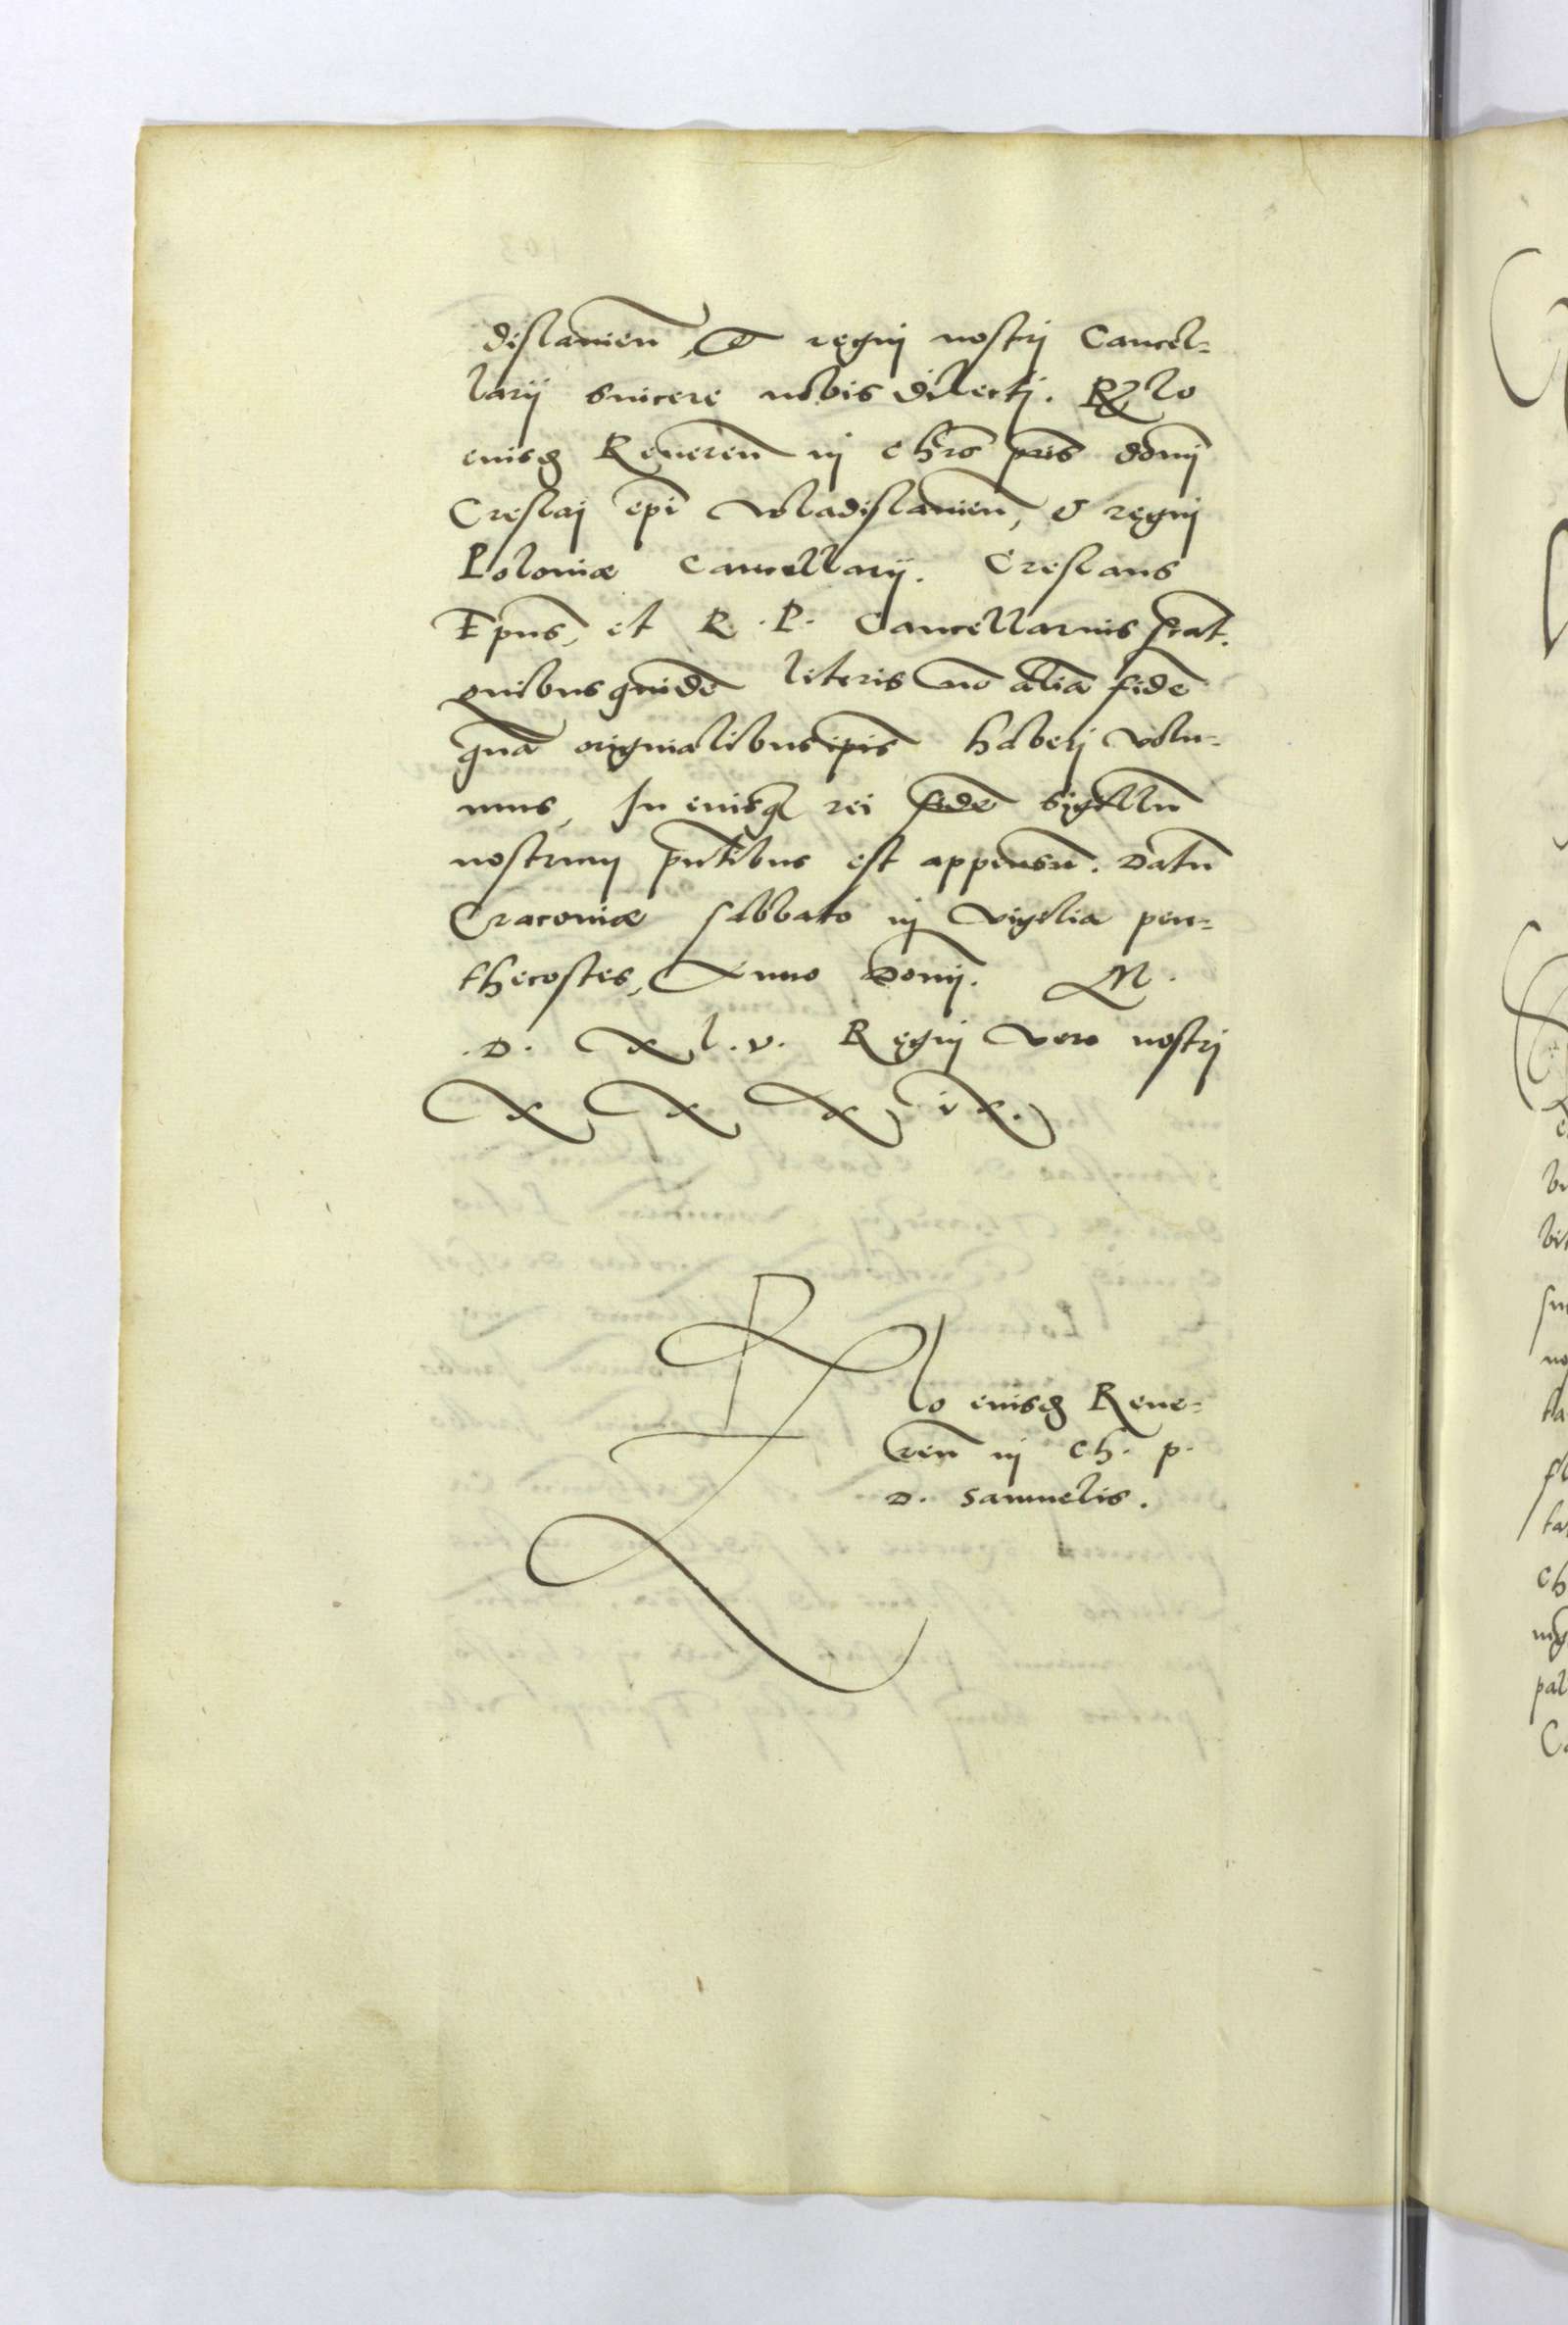 dislauien̄, & regnj nostrj Cancel=
larij sincere nobis dilectj. R̃lo
eiusḋ Reueren̄ in chr̄o pr̄is dom̄
Creslaj ep̄i wladislauien̄, & regnj
Poloniæ Cancellarij. Creslaus
Ep̄us, et R. P. Cancellarius sc̄at.
quibusquidē literis nō aliā fidē
quā originalibus ip̄is haberj volu=
mus, In cuiusq̨ rei fidē sigillū
nostrum pn̄tibus est appensū. Datū
Cracouiæ sabbato in vigilia pen=
thecostes, Anno Domj. M.
.D. xl.v. Regnj vero nostrj
XXXix.
R̃lo eiusḋ Reue=
ren̄ in ch. p.
D. samuelis.